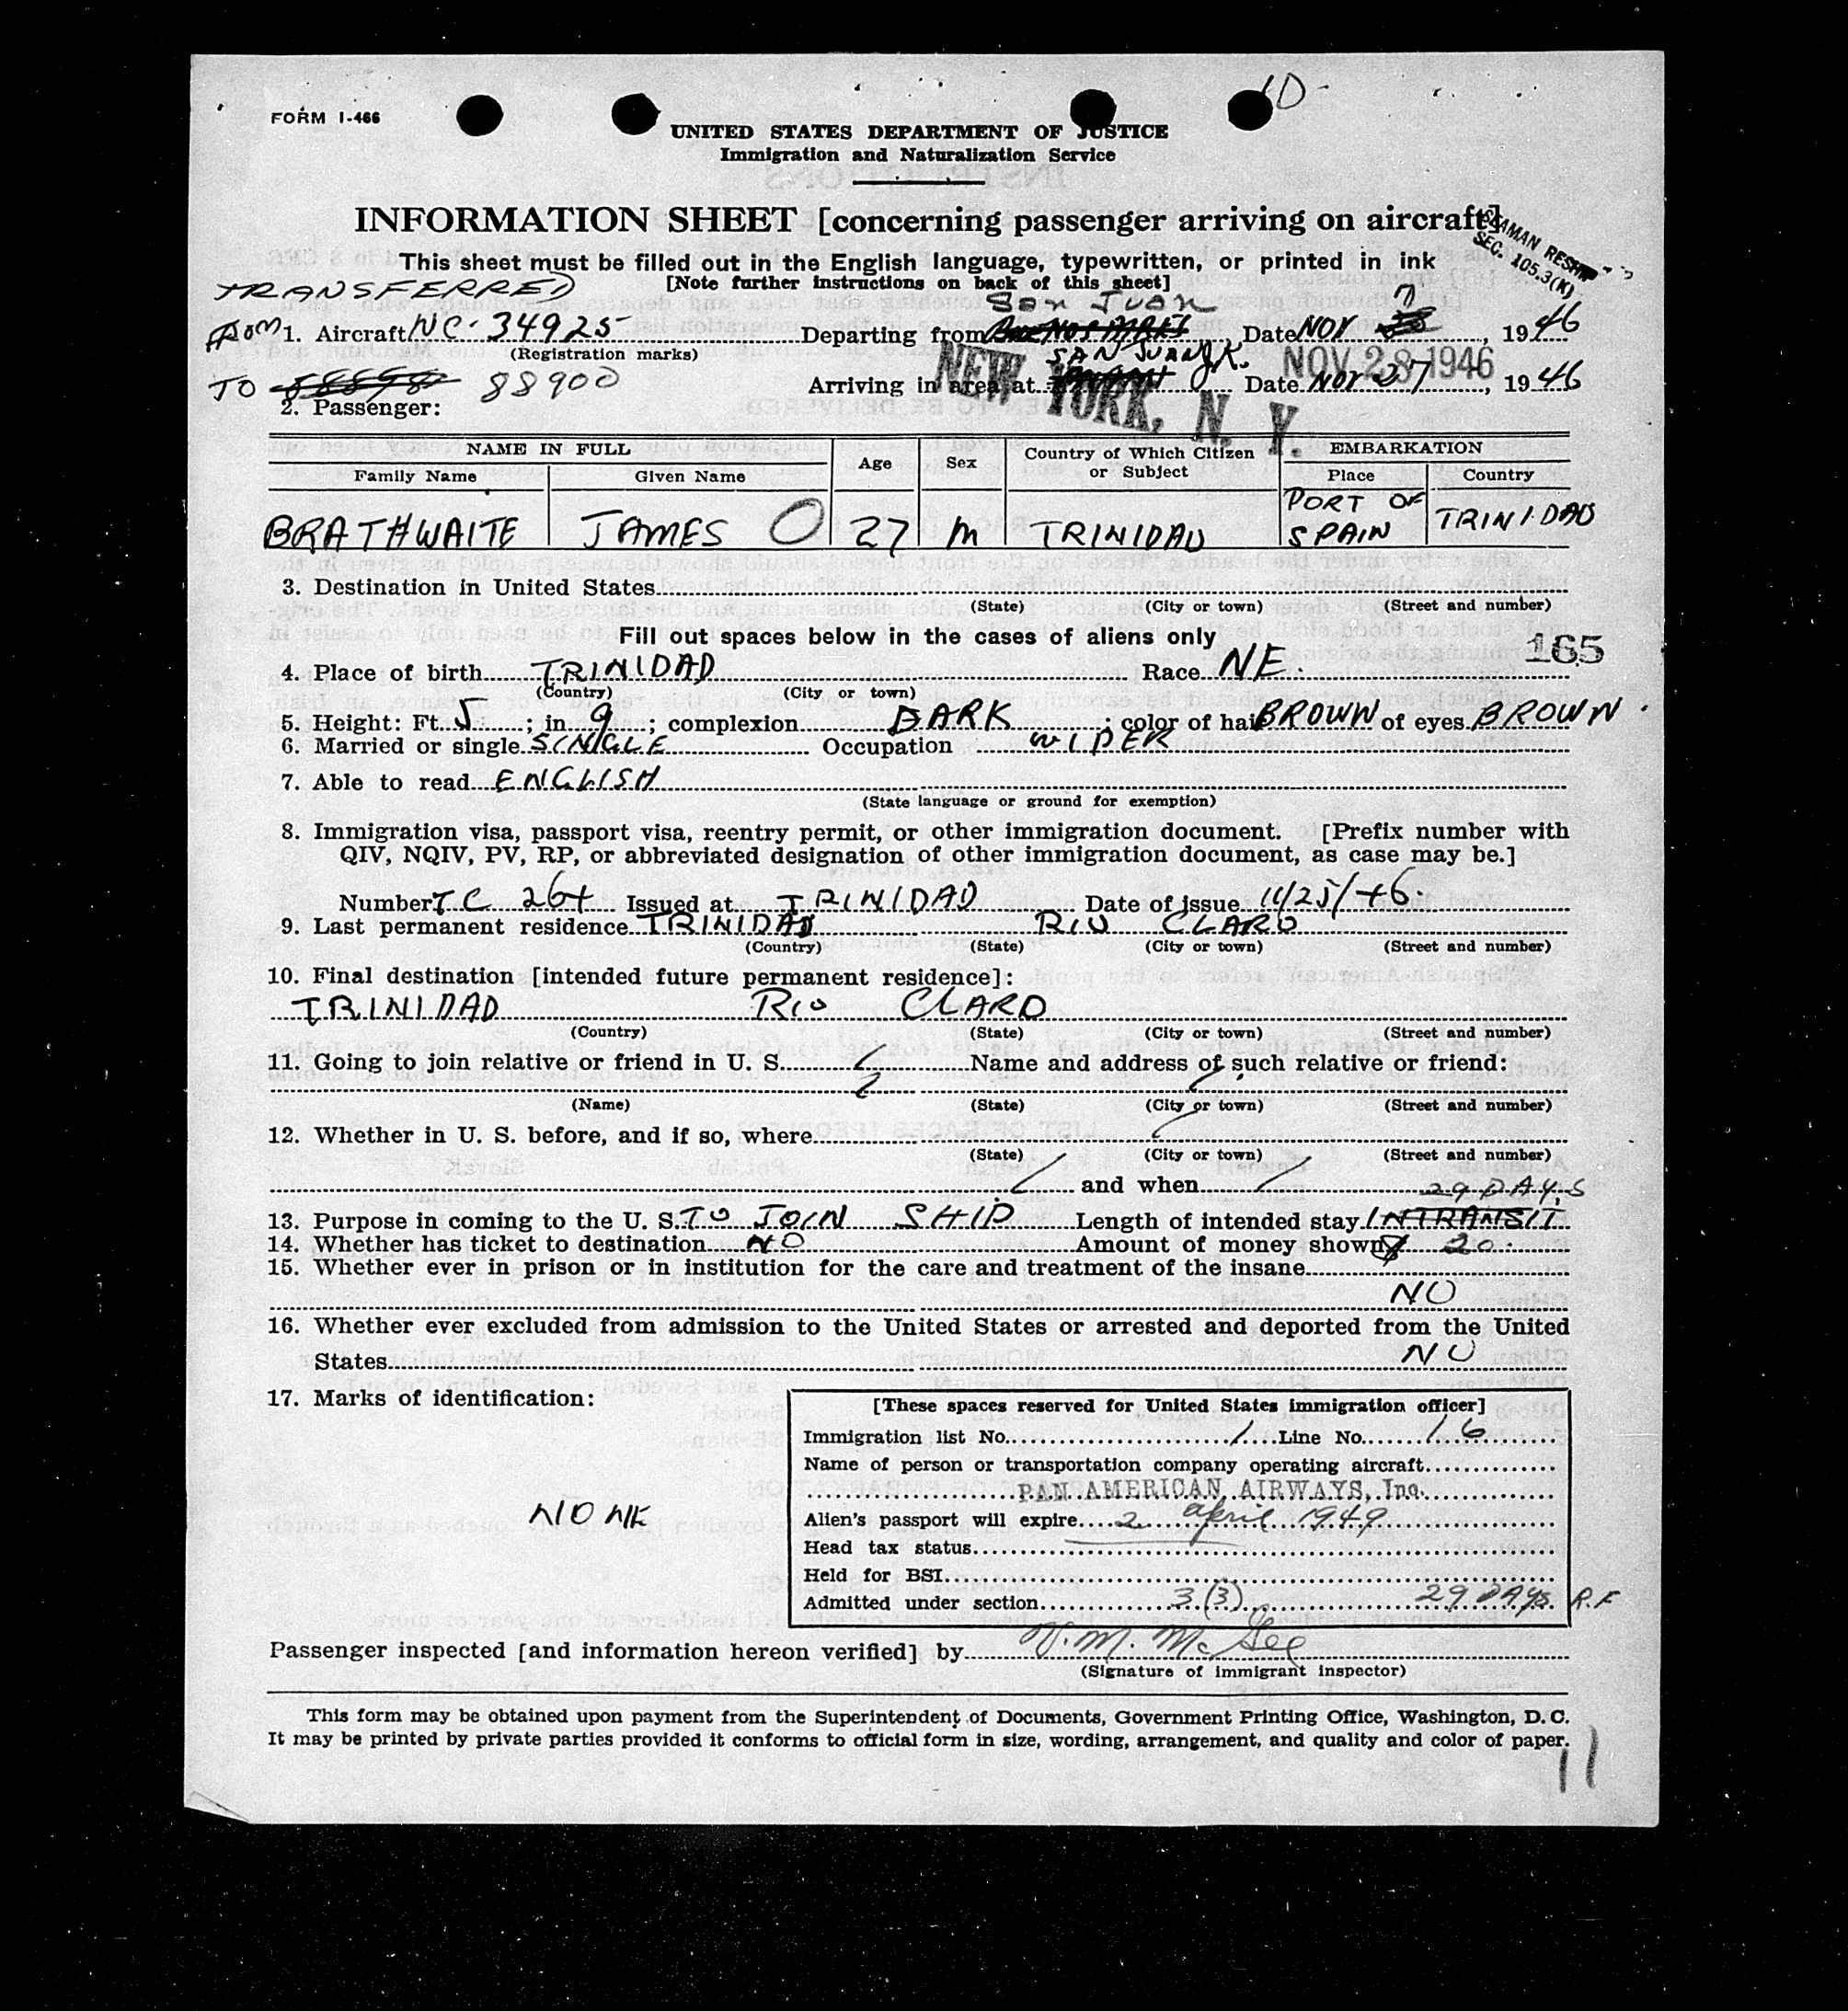 10-
FORM I-466
UNITED STATES DEPARTMENT OF JUSTICE
Immigration and Naturalization Service
INFORMATION SHEET [concerning passenger arriving on aircraft]
SEAMAN
SEC. 105.3(K)
This sheet must be filled out in the English language, typewritten, or printed in ink
[Note further instructions on back of this sheet]
TRANSFERRED
San Juan
FROM 1. Aircraft NC-34925 Departing from BUENOS AIRES, Date NOV 7, 1946
(Registration marks)
SAN JUAN
NEW YORK, N. Y.
NOV 28 1946
TO 88898 88900 Arriving in area at Date NOV 27, 1946
2. Passenger:
NAME IN FULL Age Sex Country of Which Citizen or Subject EMBARKATION
Family Name Given Name Place Country
BRATHWAITE JAMES O 27 M TRINIDAD PORT OF SPAIN TRINIDAD
3. Destination in United States
(State) (City or town) (Street and number)
Fill out spaces below in the cases of aliens only
165
4. Place of birth TRINIDAD Race NE.
(Country) (City or town)
5. Height: Ft. 5; in 9; complexion DARK; color of hair BROWN of eyes BROWN.
6. Married or single SINGLE Occupation WIPER
7. Able to read ENGLISH
(State language or ground for exemption)
8. Immigration visa, passport visa, reentry permit, or other immigration document. [Prefix number with
QIV, NQIV, PV, RP, or abbreviated designation of other immigration document, as case may be.]
Number TC 264 Issued at TRINIDAD Date of issue 11/25/46.
9. Last permanent residence TRINIDAD RIO CLARO
(Country) (State) (City or town) (Street and number)
10. Final destination [intended future permanent residence]:
TRINIDAD RIO CLARO
(Country) (State) (City or town) (Street and number)
11. Going to join relative or friend in U. S. Name and address of such relative or friend:
(Name) (State) (City or town) (Street and number)
12. Whether in U. S. before, and if so, where
(State) (City or town) (Street and number)
and when
29 DAYS
13. Purpose in coming to the U. S. TO JOIN SHIP Length of intended stay INTRANSIT
14. Whether has ticket to destination NO Amount of money shown $ 20.
15. Whether ever in prison or in institution for the care and treatment of the insane
NO
16. Whether ever excluded from admission to the United States or arrested and deported from the United
States NO
17. Marks of identification:
NONE
[These spaces reserved for United States immigration officer]
Immigration list No. 1 Line No. 16
Name of person or transportation company operating aircraft
PAN AMERICAN AIRWAYS, Inc.
Alien's passport will expire 2 april 1949
Head tax status
Held for BSI
Admitted under section 3(3) 29 DAYS. R.F
Passenger inspected [and information hereon verified] by V. M. McGee
(Signature of immigrant inspector)
This form may be obtained upon payment from the Superintendent of Documents, Government Printing Office, Washington, D. C.
It may be printed by private parties provided it conforms to official form in size, wording, arrangement, and quality and color of paper.
11